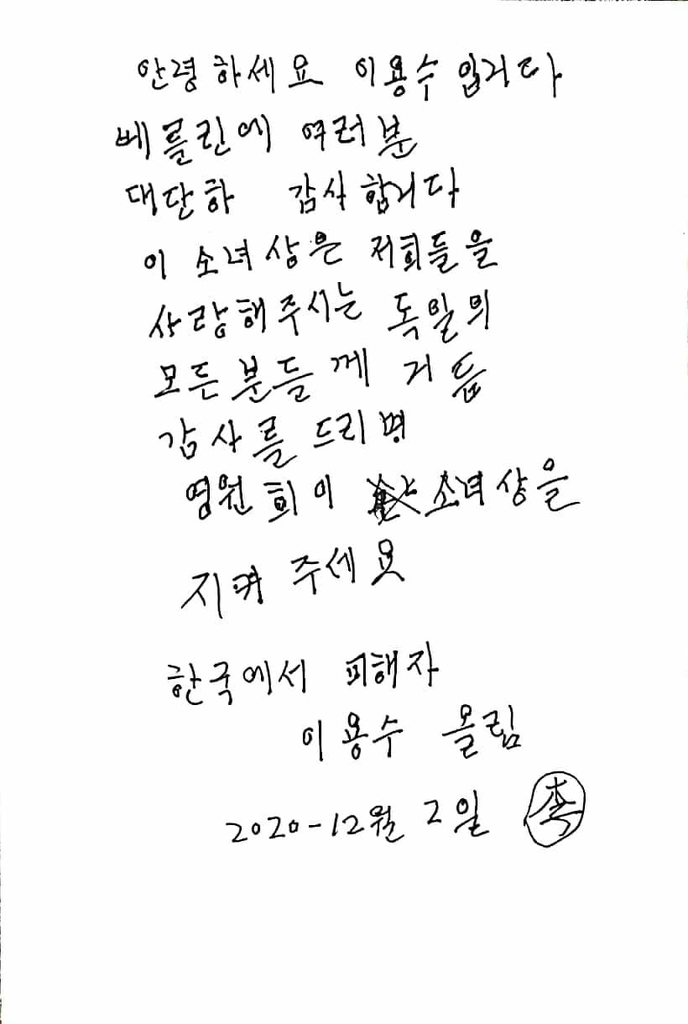 안령하세요 이용수입니다
베를린에 여러분
대단하 감사합니다
이 소녀상은 저희들을
사랑해주시는 독일의
모든분들께 거듭
감사를 드리며
영원히이 소녀상을
지켜 주세요
한국에서 피해자
이용수 올림
2020-12월 2일 李